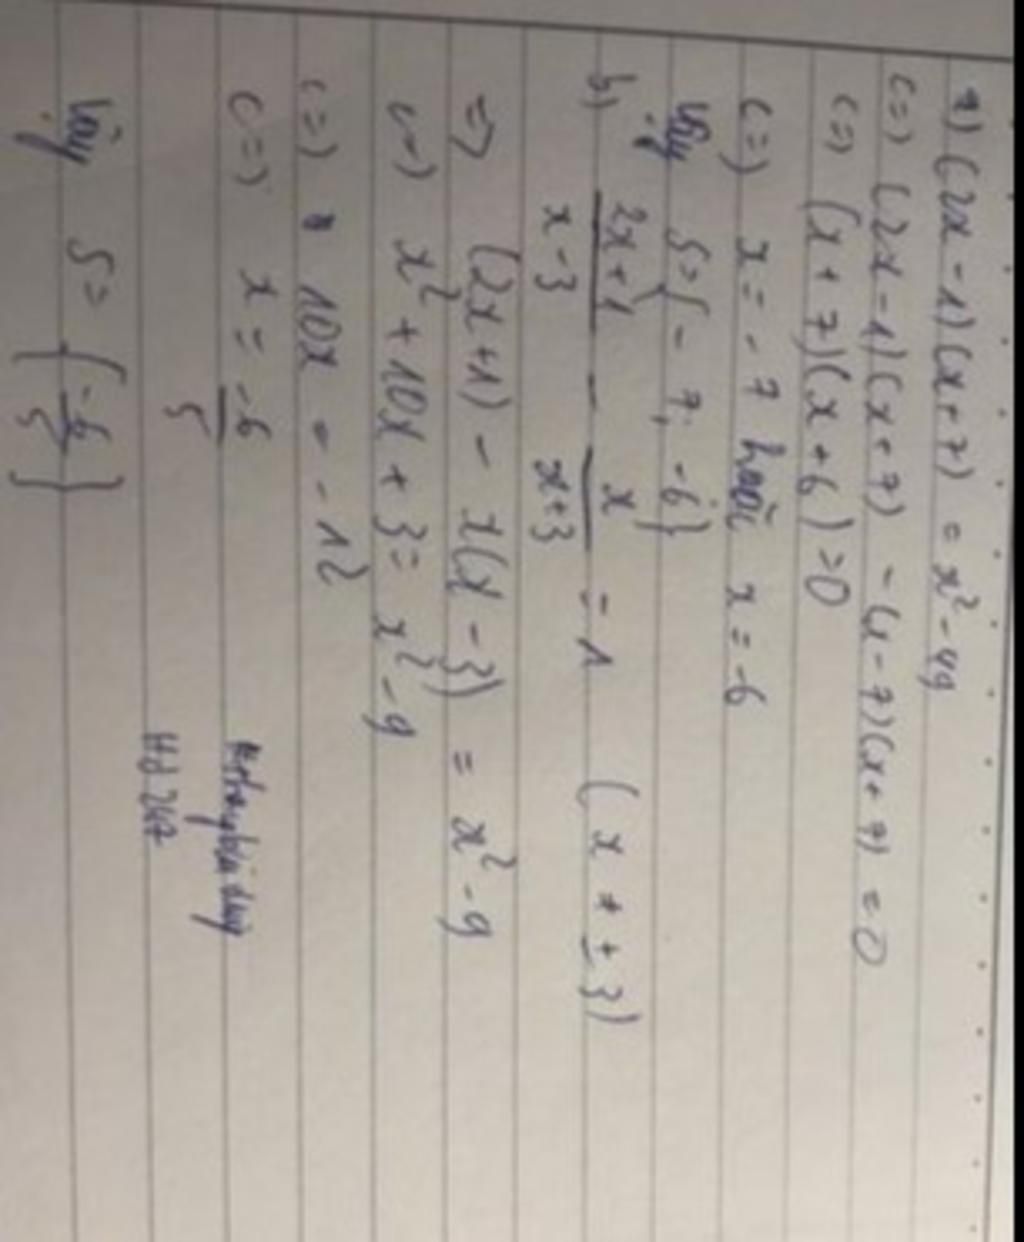 a) (2x - 1)(x + 7) = x² - 49
<=> (2x - 1)(x + 7) - (x - 7)(x + 7) = 0
<=> (x + 7)(x + 6) = 0
<=> x = -7 hoặc x = -6
Vậy S = { -7; -6}
b) \frac{2x+1}{x-3} - \frac{x}{x+3} = 1 (x ≠ ± 3)
=> (2x+1) - x(x - 3) = x² - 9
<=> x² + 10x + 3 = x² - 9
<=> 10x = - 12
<=> x = \frac{-6}{5}
Hd 247
Vậy S = { \frac{-6}{5} }